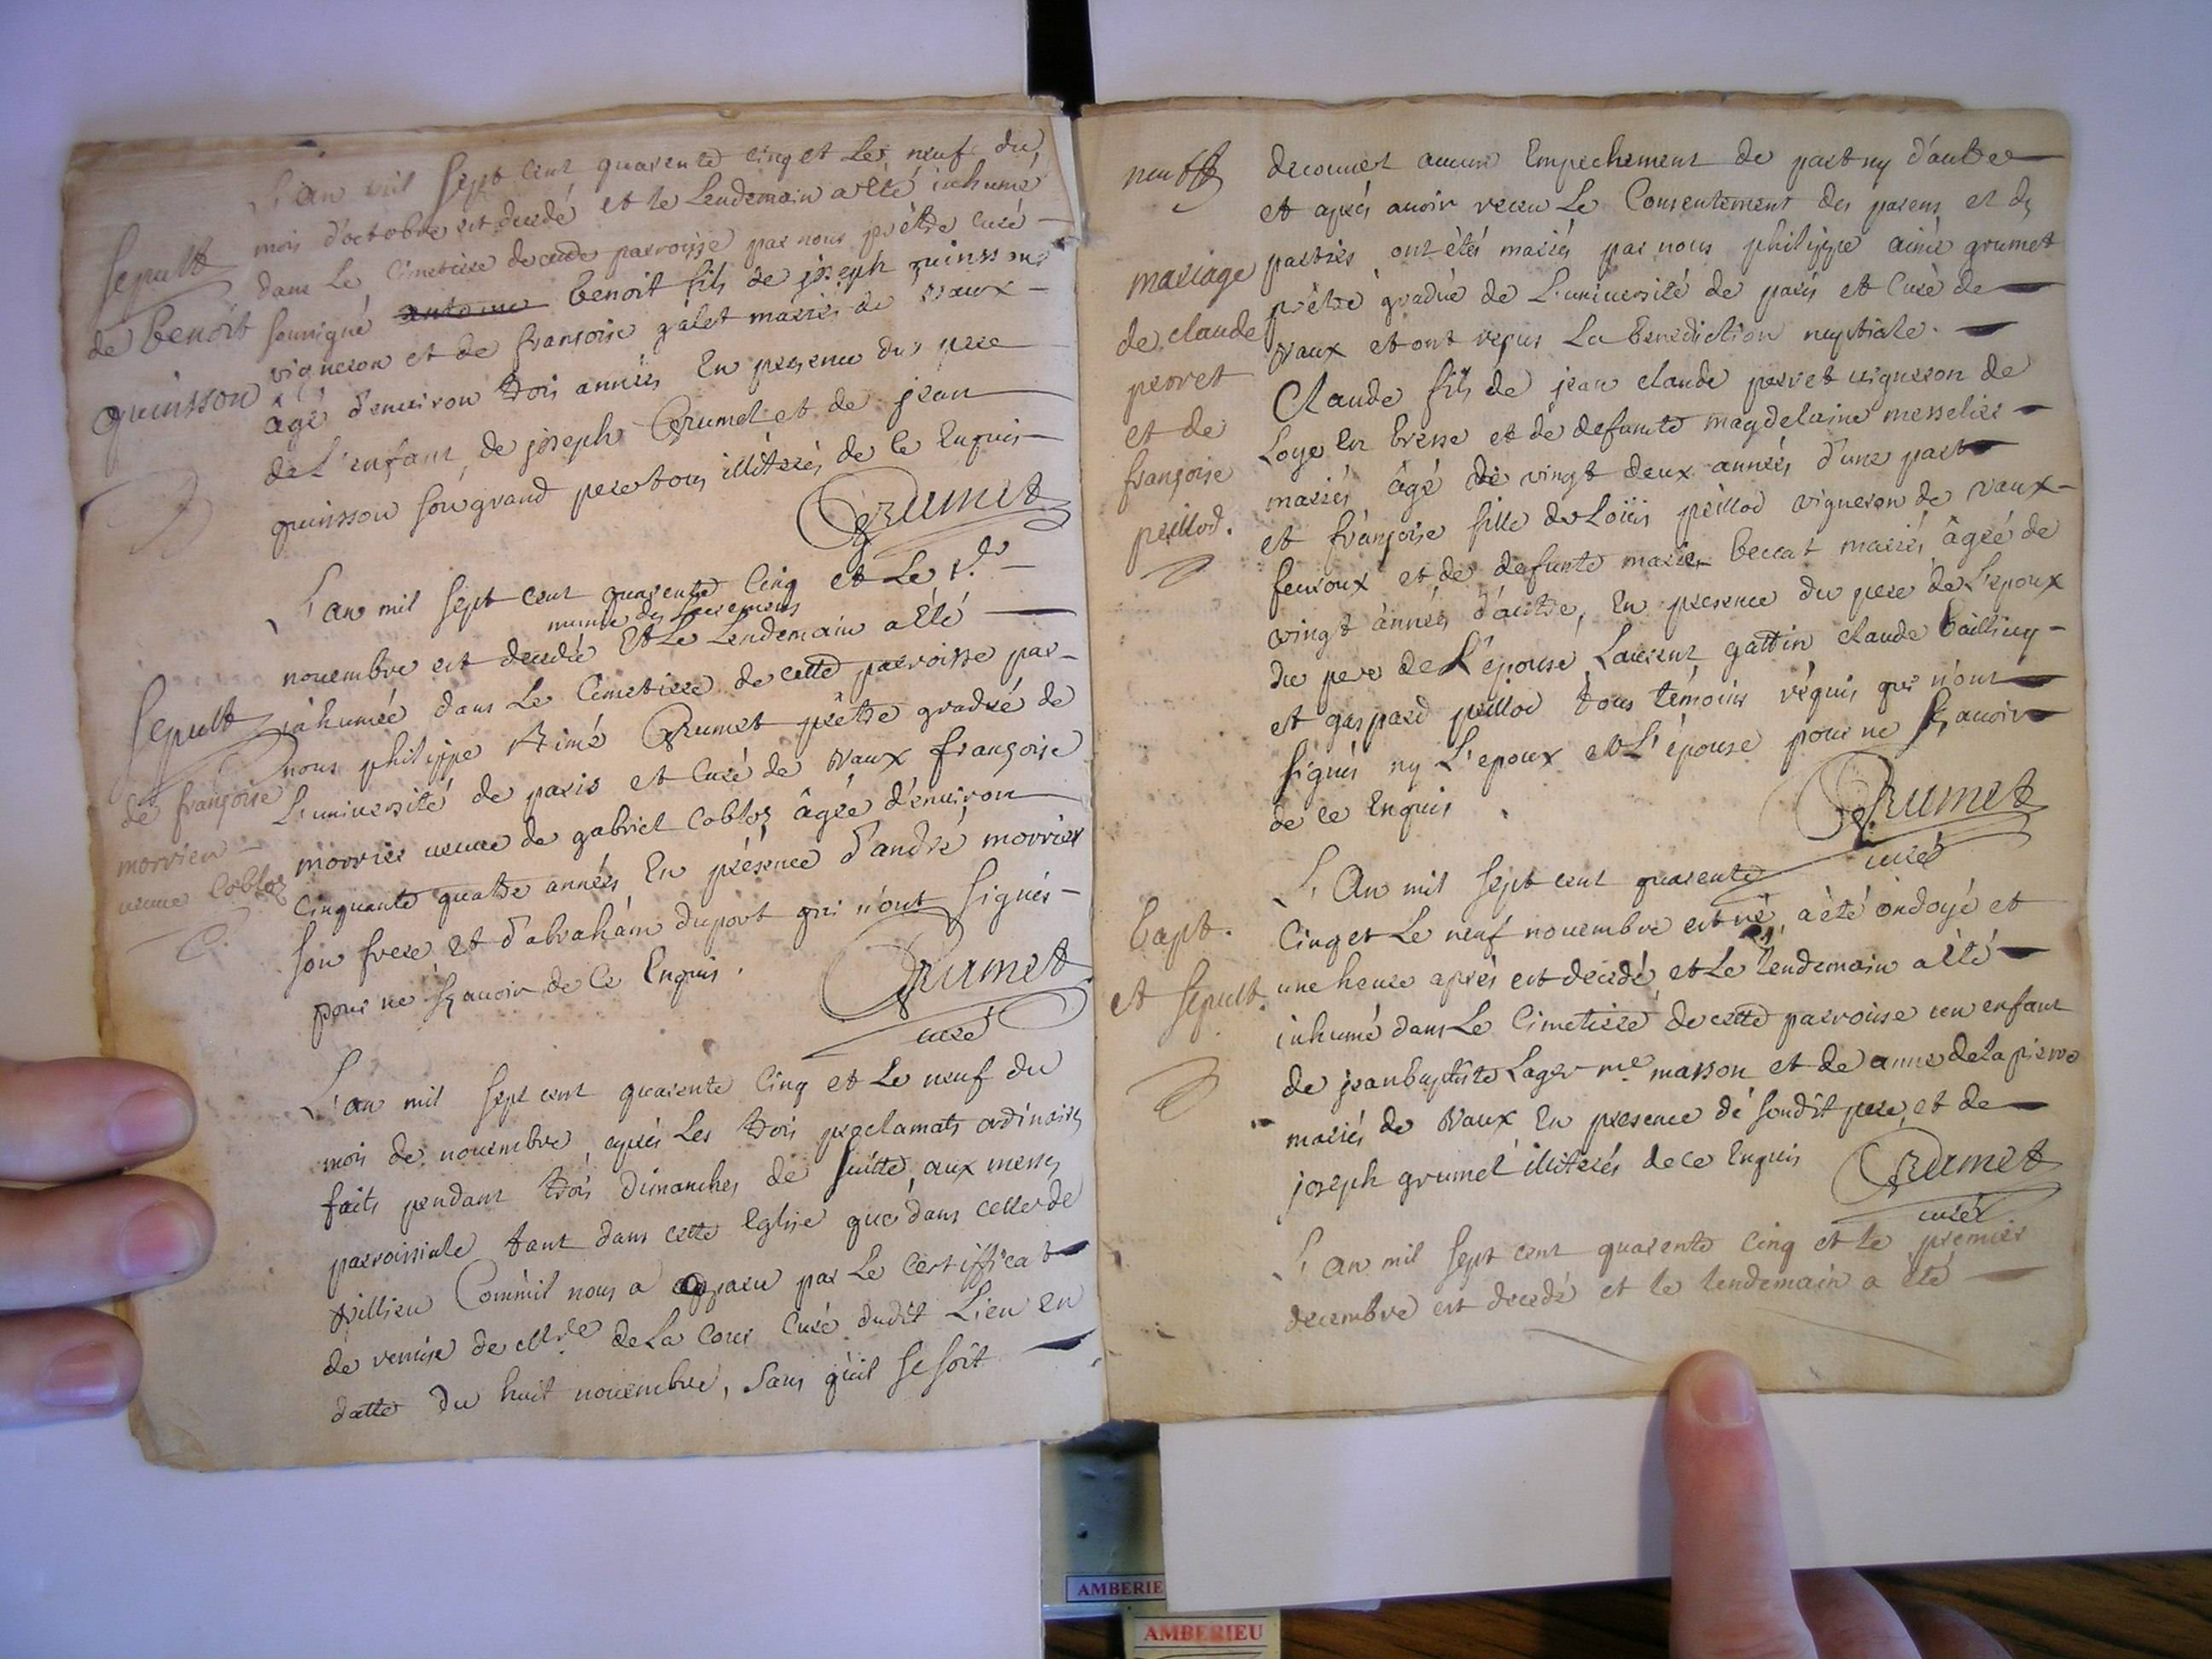 L'an mil sept cent quarente cinq et le neuf du
mois d'octobre est decedé et le lendemain a été inhumé
dans le cimetiere de cette parroisse par nous prêtre curé
soussigné benoit fils de joseph quinsson
vigneron et de françoise galet mariés de vaux
âgé d'environ trois années en presence du pere
de l'enfant, de joseph Grumet et de jean
quinsson son grand pere tous illiterés de ce enquis
Grumet
sepult
de benoit
quinsson
L'an mil sept cent quarente cinq et le
munie des sacremens
novembre est decedée et le lendemain a été
inhumée dans le cimetiere de cette parroisse par
nous philippe Aimé Grumet prêtre gradué de
L'université de paris et curé de vaux françoise
morrier veuve de gabriel cobloz âgée d'environ
cinquante quatre années en présence d'andré morrier
son frere et d'abraham duport qui n'ont signés
pour ne sçavoir de ce enquis.
Grumet
curé
sepult
de françoise
morrier
veuve Cobloz
L'an mil sept cent quarente cinq et le neuf du
mois de novembre, aprés les trois proclamats ordinaires
faits pendant trois dimanches de suitte, aux messes
parroissiale tant dans cette Eglise que dans celle de
villieu Comm'il nous a apparu par le certifficat
de remise de de la Cour curé dudit Lieu en
datte du huit novembre, sans qu'il se soit
neufs
decouvert aucun Empechement de part ny d'autre
et aprés avoir receu le Consentement des parens et des
parties ont étés mariés par nous philippe aimé grumet
prêtre gradué de L'université de paris et curé de
vaux et ont reçus La benediction nuptiale.
Claude fils de jean claude perret vigneron de
Loye en bresse et de defunte magdelaine messelier
mariés âgé de vingt deux années d'une part
et françoise fille de Loüis peillod vigneron de vaux
fevroux et de defunte marie beccat mariés âgée de
vingt années d'autre, en presence du pere de L'epoux
du pere de L'épouse, Laurent gattin claude bailluy
et gaspard peillod tous témoins réquis qui n'ont
signés ny L'epoux et L'épouse pour ne sçavoir
de ce enquis
Grumet
curé
mariage
de claude
perret
et de
françoise
peillod.
L'An mil sept cent quarente
cinq et Le neuf novembre est né, a été ondoyé et
une heure aprés est decedé, et Le lendemain a été
inhumé dans Le cimetiere de cette parroisse un enfant
de jean baptiste Lager me masson et de anne delapierre
mariés de vaux en presence de sondit pere, et de
joseph grumet illiterés de ce enquis
Grumet
curé
bapt.
et sepult.
L'an mil sept cent quarente cinq et le premier
decembre est decedé et le lendemain a été
AMBERIE
AMBERIEU